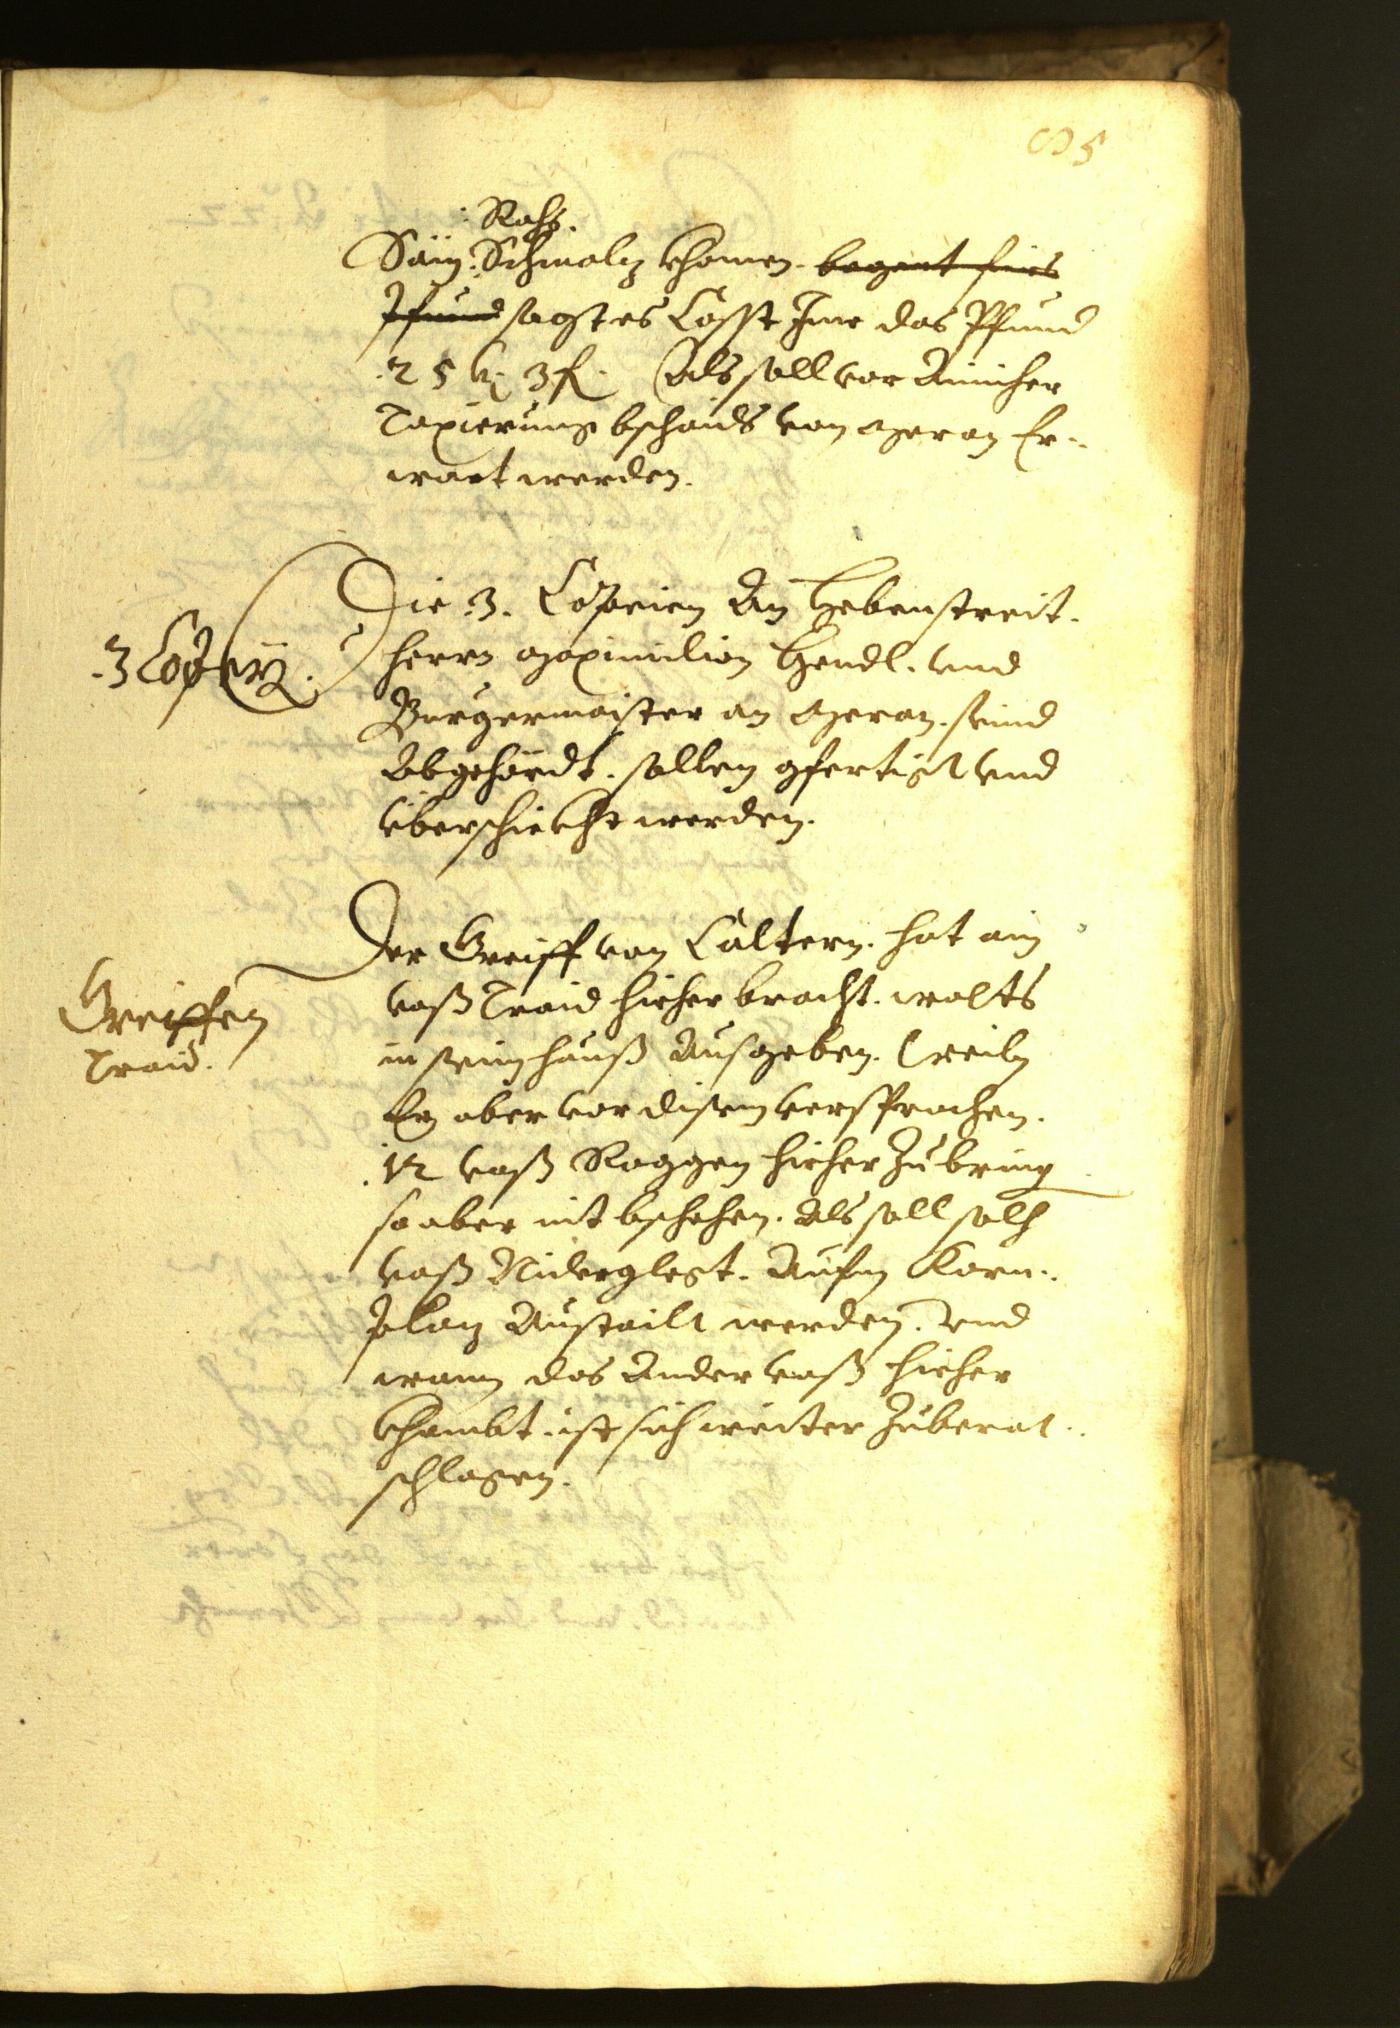 85
Roh
Säy: Schmalz khomen. begert fürs
Pfund sagt es Cosst Ime das Pfund
25 k. 3 f. Als soll vor Ainicher
Taxierung bschaids von Meran Er-
wart werden.
3 Copeyen.
Die 3. Copeien An Hebenstreit.
herrn Maximilian Hendl. vnd
Burgermaister an Meran. seind
Abgehördt. sollen gfertigt vnd
überschickht werden.
Greiffen
Traid.
Der Greiff von Caltern. hat ain
vaß Traid hieher bracht. wolts
in seim hauß Ausgeben. weiln
Er aber vor disem versprochen.
12 vaß Roggen hieher zubring
so aber nit bschehen. Als soll solh
vaß Niderglegt. Aufm Korn-
plaz Austailt werden. vnd
wann das Ander vaß hieher
khombt. ist sich weiter zuberat-
schlagen.